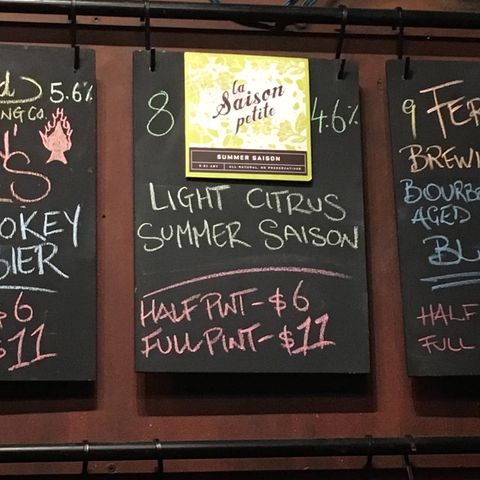 5.6%
NG CO.
S
OKEY
BIER
$6
$11
8
la
Saison
petite
4.6%
SUMMER SAISON
ALL NATURAL, NO PRESERVATIVES
LIGHT CITRUS
SUMMER SAISON
HALF PINT - $6
FULL PINT - $11
9 FER
BREWI
BOURB
AGED
BL
HALF
FULL